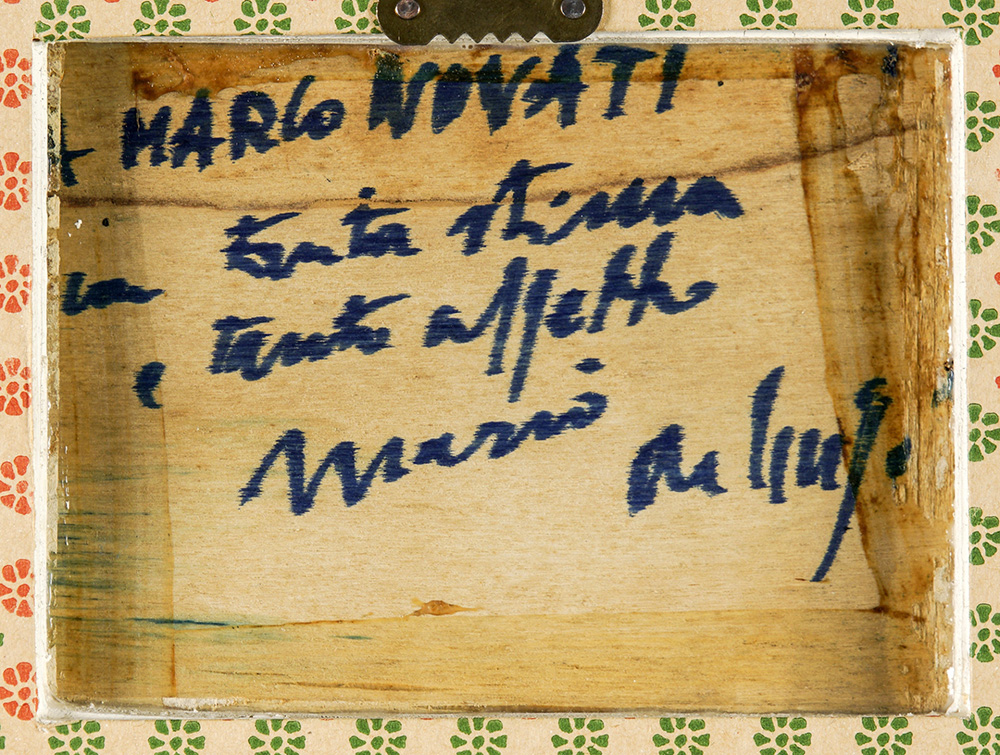 A MARCO NOVATI
con tanta stima
e tanto affetto
Mario de Luigi